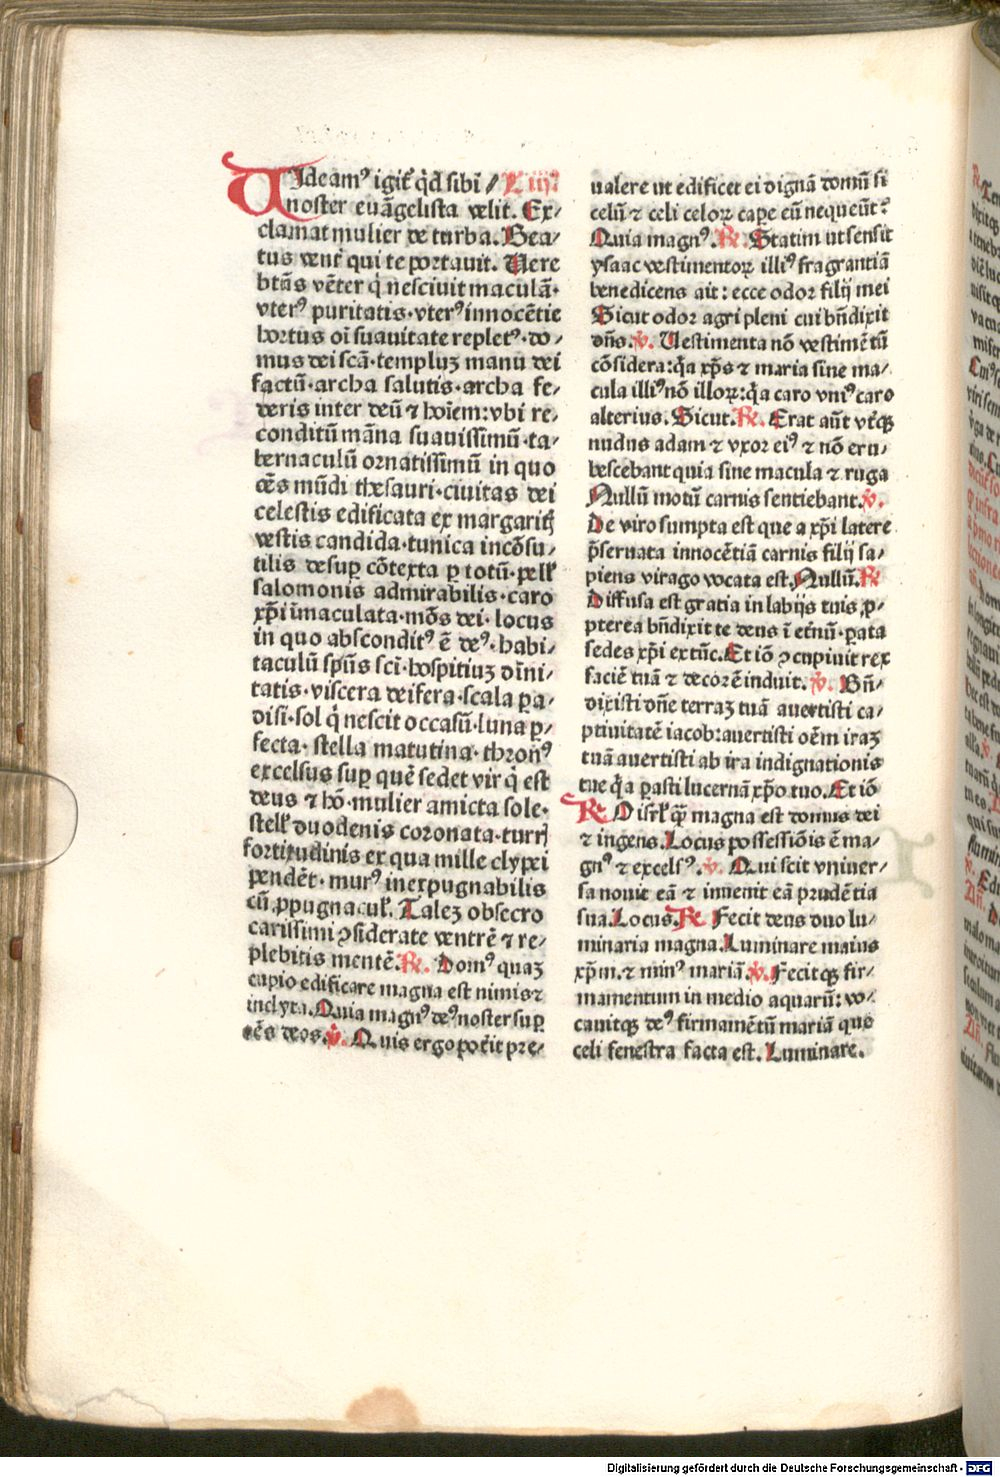 Uideamꝰ igit᷑ q̇d sibi / L iiij.
noster euãgelista velit. Ex⸗
clamat mulier de turba. Bea⸗
tus vent᷑ qui te portauit. Uere
btũs vẽter q̇ nesciuit maculã·
vterꝰ puritatis·vterꝰ innocẽtie
hortus oĩ suauitate repletꝰ·do⸗
mus dei scã·templuꝫ manu dei
factũ·archa salutis·archa fe⸗
deris inter deũ ⁊ hoĩem:vbi re⸗
conditũ mãna suauissimũ·ta⸗
bernaculũ ornatissimũ in quo
oẽs mũdi thesauri·ciuitas dei
celestis edificata ex margaritꝭ
vestis candida·tunica incõsu⸗
tilis desuꝑ cõtexta ꝑ totũ·pell᷑
salomonis admirabilis·caro
xp̃i ĩmaculata·mõs dei·locus
in quo absconditꝰ ẽ deꝰ·habi⸗
taculũ spũs sci·hospitiuꝫ diĩni⸗
tatis·viscera deifera·scala pa⸗
disi·sol q̇ nescit occasũ·luna ꝑ⸗
fecta·stella matutina·thronꝰ
excelsus suꝑ quẽ sedet vir q̇ est
deus ⁊ hõ·mulier amicta sole·
stell᷑ duodenis coronata·turrꝭ
fortitudinis ex qua mille clypei
pendẽt·murꝰ inexpugnabilis
cũ ꝓpugnacul᷑. Talez obsecro
carissimi ꝯsiderate ventrẽ ⁊ re⸗
plebitis mentẽ. ℟. Domꝰ quaꝫ
cupio edificare magna est nimis⁊
inclyta. Quia magnꝰ deꝰ noster suꝑ
oẽs deos. ℣. Quis ergo poťit pre⸗
ualere ut edificet ei dignã domũ si
celũ ⁊ celi celoꝝ caꝑe eũ nequeũt:
Quia magnꝰ. ℟. Statim ut sensit
ysaac vestimentoꝝ illiꝰ fragrantiã
benedicens ait: ecce odor filij mei
Sicut odor agri pleni cui bñdixit
dñs. ℣. Uestimenta nõ vestimẽtũ
cõsidera:q̃a xp̃s ⁊ maria sine ma⸗
cula illiꝰ nõ illoꝝ:q̃a caro vniꝰ caro
alterius. Sicut. ℟. Erat aũt vťqꝫ
nudus adam ⁊ vxor eiꝰ ⁊ nõ eru⸗
bescebant quia sine macula ⁊ ruga
Nullũ motũ carnis sentiebant. ℣.
De viro sumpta est que a xp̃i latere
p̃seruata innocẽtiã carnis filij sa⸗
piens virago vocata est. Nullũ. ℟
Diffusa est gratia in labijs tuis ꝓ⸗
pterea bñdixit te deus ĩ etñũ·pata
sedes xp̃i ex tũc. Et iõ ꝯcupiuit rex
faciẽ tuã ⁊ decorẽ induit. ℣. Bñ⸗
dixisti dñe terraꝫ tuã auertisti ca⸗
ptiuitatẽ iacob:auertisti oẽm iraꝫ
tuã auertisti ab ira indignationis
tue q̃a pasti lucernã xp̃o tuo. Et iõ
℟ O isrl᷑ q̃ꝫ magna est domus dei
⁊ ingens. Locus possessiõis ẽ ma⸗
gnꝰ ⁊ excelsꝰ. ℣. Qui scit vniuer⸗
sa nouit eã ⁊ inuenit eã prudẽtia
sua. Locus. ℟ Fecit deus duo lu⸗
minaria magna. Luminare maius
xp̃m. ⁊ minꝰ mariã. ℣. Fecitqꝫ fir⸗
mamentum in medio aquarũ: vo⸗
cauitqꝫ deꝰ firmamẽtũ mariã que
celi fenestra facta est. Luminare.
Digitalisierung gefördert durch die Deutsche Forschungsgemeinschaft - DFG